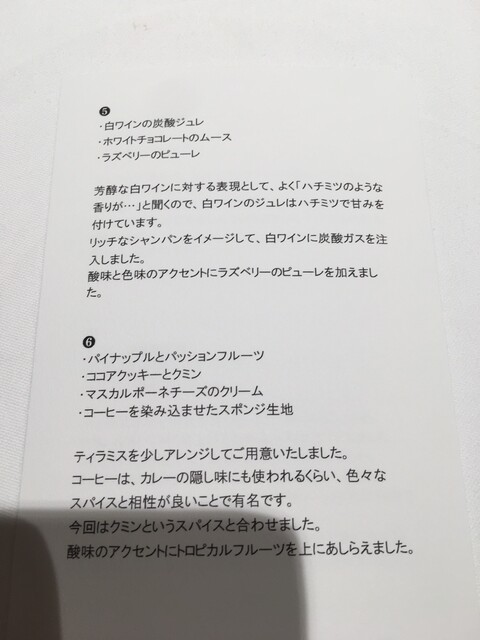 ❺
・白ワインの炭酸ジュレ
・ホワイトチョコレートのムース
・ラズベリーのピューレ
芳醇な白ワインに対する表現として、よく「ハチミツのような
香りが…」と聞くので、白ワインのジュレはハチミツで甘みを
付けています。
リッチなシャンパンをイメージして、白ワインに炭酸ガスを注
入しました。
酸味と色味のアクセントにラズベリーのピューレを加えまし
た。
❻
・パイナップルとパッションフルーツ
・ココアクッキーとクミン
・マスカルポーネチーズのクリーム
・コーヒーを染み込ませたスポンジ生地
ティラミスを少しアレンジしてご用意いたしました。
コーヒーは、カレーの隠し味にも使われるくらい、色々な
スパイスと相性が良いことで有名です。
今回はクミンというスパイスと合わせました。
酸味のアクセントにトロピカルフルーツを上にあしらえました。